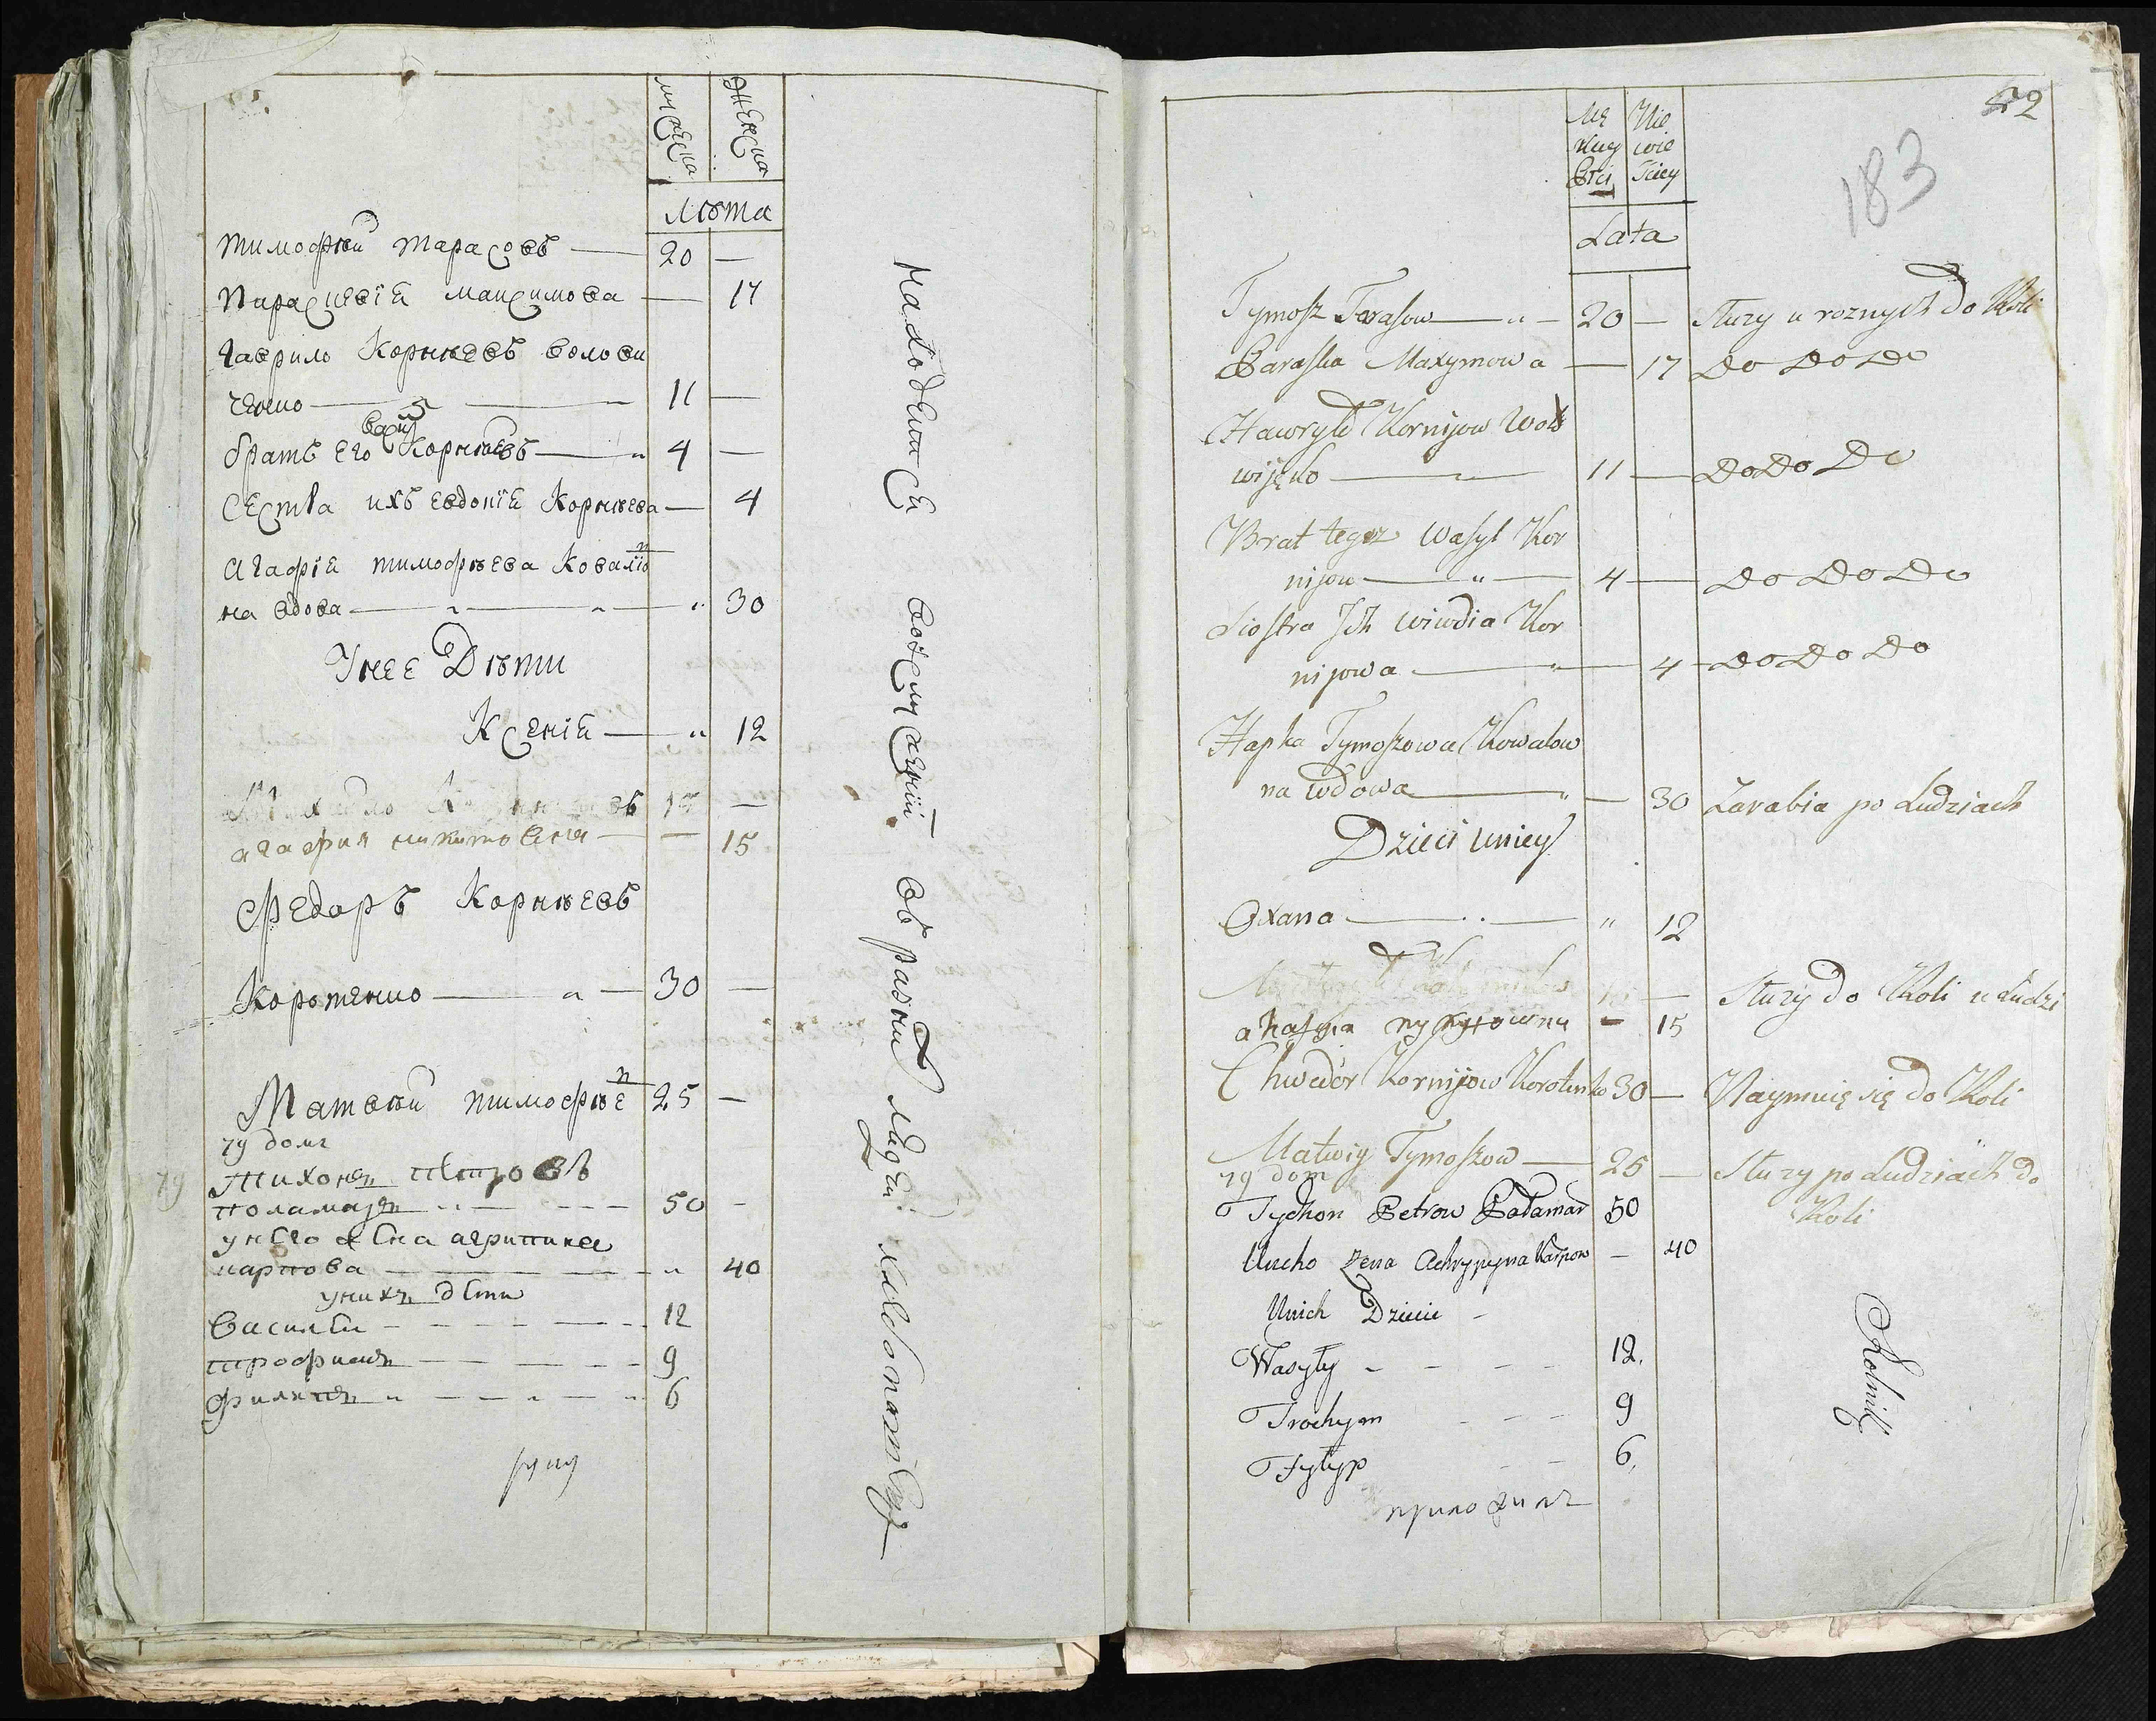 мужеска
женска
лѣта
тимофѣй тарасовъ — 20 —
параскевія максимова — 17
гаврило Корнѣевъ волови
ченко — 11 —
василь
братъ его Корнѣевъ — 4 —
Сестра ихъ евдокія Корнѣева — 4
агафія тимофѣева Ковалю
на вдова — 30
У нее Дѣти
Ксенія — 12
агафия никитовна — 15
Федоръ Корнѣевъ
Коротенко — 30 —
Матвѣй тимофѣе 25 —
79 домъ
79
Тихонъ петровъ
поламаръ 50 -
у него жена агрипина
карпова 40
у нихъ дети
Василей 12
трофимъ 9
филипъ 6
руку
находятся въ услуженій въ разныхъ людей
72
183
Mę
skiey
płci
Nie
wie
sciey
Lata
Tymosz Tarasow — 20 — Służy u roznych do Roli
Paraska Maxymowa — 17 Do Do Do
Hawryło Kornijow Woło
wijęko — 11 — Do Do Do
Brat tegoz Wasyl Kor
nijow — 4 — Do Do Do
Siostra Jch Wiwdia Kor
nijowa — 4 Do Do Do
Hapka Tymoszowa Kowalow
na wdowa — 30 Zarabia po Ludziach
Dzieci u niey
Oxana — 12
Służy do Roli u Ludzi
ahafyia nykytowna — 15
Chwedor Kornijow Korotenko 30 — Naymuię się do Roli
Matwiy Tymoszow — 25 — Służy po Ludziach do
Roli
79 dom
Tychon Petrow Pałamar 50
Uneho Zena Achrypyna Karpow — 40
Unich Dzieci -
Wasyły 12.
Trochym 9
Fyłyp 6.
Rolnik
приложилъ